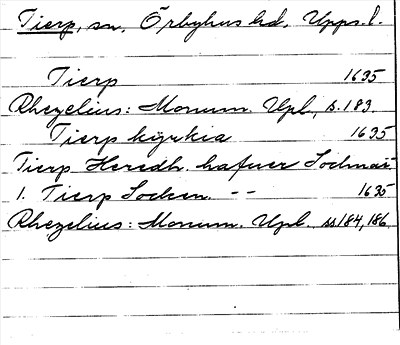 Tierp, sn, Örbyhus hd, Upps. l.
Tierp 1635
Rhezelius: Monum. Upl, s. 183
Tierp kÿrkia 1635
Tierp Heredh. hafuer Sochnar
1. Tierp Sochen. -- 1635
Rhezelius: Monum. Upl. ss 184, 186